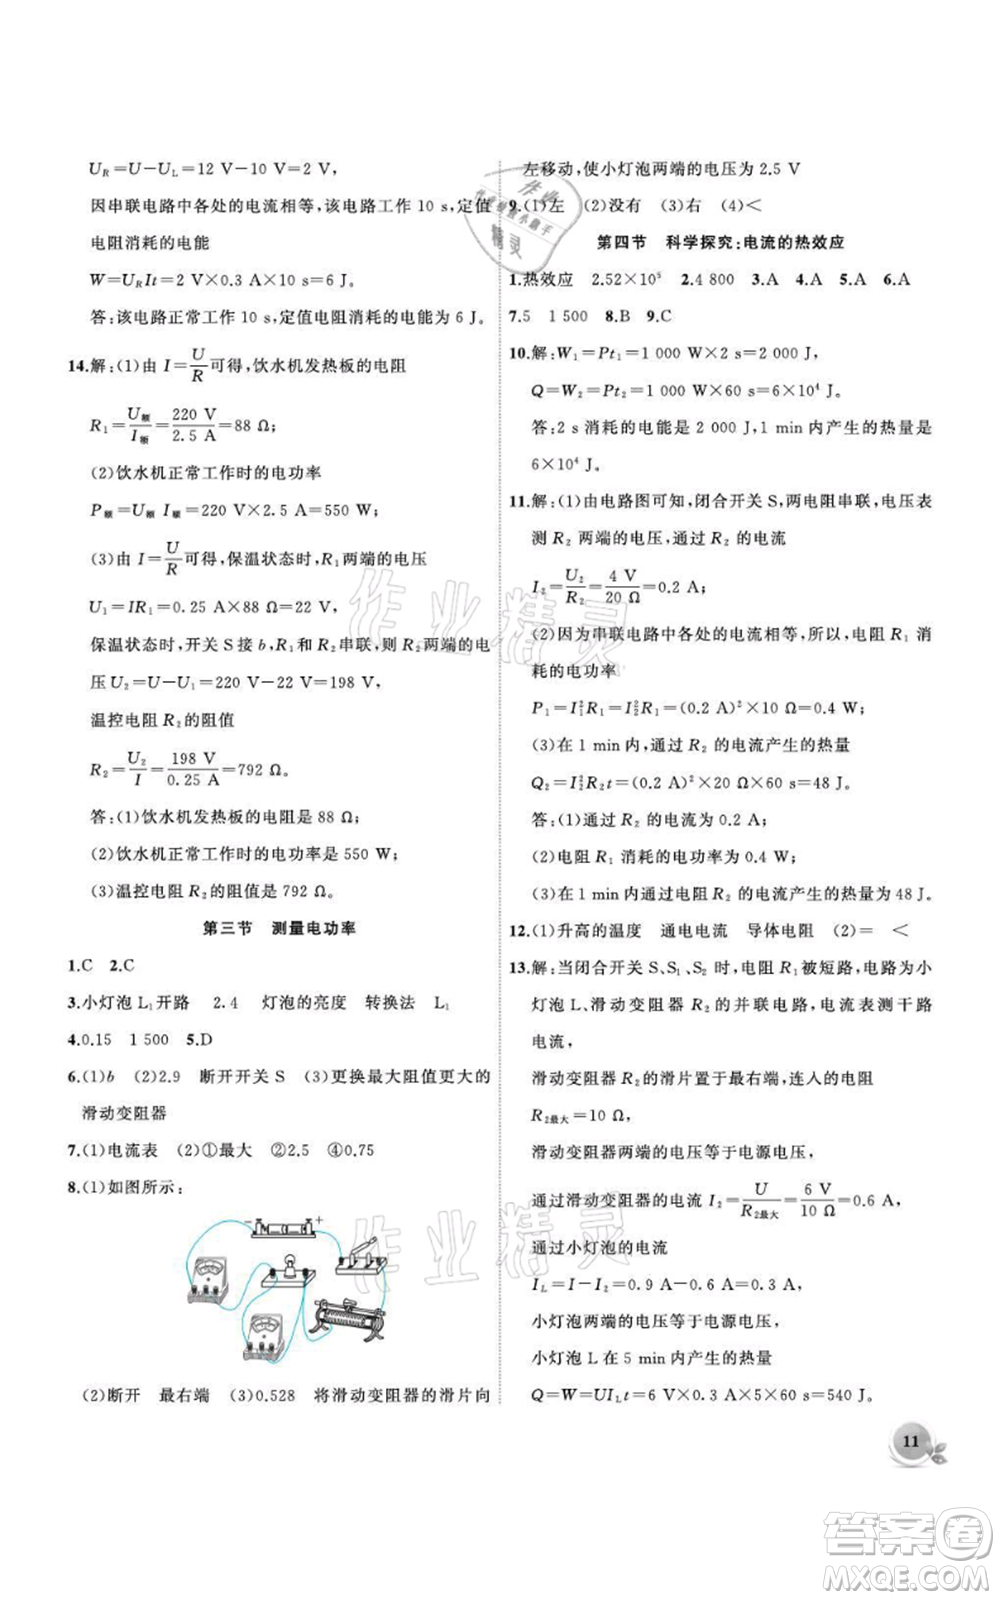 U_R=U-U_L=12 V-10 V=2 V,
因串联电路中各处的电流相等,该电路工作 10 s,定值
电阻消耗的电能
W=U_R It=2 V×0.3 A×10 s=6 J。
答:该电路正常工作 10 s,定值电阻消耗的电能为 6 J。
14.解:(1)由 I=U/R可得,饮水机发热板的电阻
R₁=U额/I额=220 V/2.5 A=88 Ω;
(2)饮水机正常工作时的电功率
P额=U额 I额=220 V×2.5 A=550 W;
(3)由 I=U/R可得,保温状态时,R₁两端的电压
U₁=IR₁=0.25 A×88 Ω=22 V,
保温状态时,开关 S 接 b,R₁和 R₂串联,则 R₂两端的电
压 U₂=U-U₁=220 V-22 V=198 V,
温控电阻 R₂的阻值
R₂=U₂/I=198 V/0.25 A=792 Ω。
答:(1)饮水机发热板的电阻是 88 Ω;
(2)饮水机正常工作时的电功率是 550 W;
(3)温控电阻 R₂的阻值是 792 Ω。
第三节 测量电功率
1.C 2.C
3.小灯泡 L₁开路 2.4 灯泡的亮度 转换法 L₁
4.0.15 1 500 5.D
6.(1)b (2)2.9 断开开关 S (3)更换最大阻值更大的
滑动变阻器
7.(1)电流表 (2)①最大 ②2.5 ④0.75
8.(1)如图所示:
- +
(2)断开 最右端 (3)0.528 将滑动变阻器的滑片向
左移动,使小灯泡两端的电压为 2.5 V
9.(1)左 (2)没有 (3)右 (4)<
第四节 科学探究:电流的热效应
1.热效应 2.52×10⁵ 2.4 800 3.A 4.A 5.A 6.A
7.5 1 500 8.B 9.C
10.解:W₁=Pt₁=1 000 W×2 s=2 000 J,
Q=W₂=Pt₂=1 000 W×60 s=6×10⁴ J。
答:2 s 消耗的电能是 2 000 J,1 min 内产生的热量是
6×10⁴ J。
11.解:(1)由电路图可知,闭合开关 S,两电阻串联,电压表
测 R₂ 两端的电压,通过 R₂ 的电流
I₂=U₂/R₂=4 V/20 Ω=0.2 A;
(2)因为串联电路中各处的电流相等,所以,电阻 R₁ 消
耗的电功率
P₁=I₁²R₁=I₂²R₁=(0.2 A)²×10 Ω=0.4 W;
(3)在 1 min 内,通过 R₂ 的电流产生的热量
Q₂=I₂²R₂t=(0.2 A)²×20 Ω×60 s=48 J。
答:(1)通过 R₂ 的电流为 0.2 A;
(2)电阻 R₁ 消耗的电功率为 0.4 W;
(3)在 1 min 内通过电阻 R₂ 的电流产生的热量为 48 J。
12.(1)升高的温度 通电电流 导体电阻 (2)= <
13.解:当闭合开关 S、S₁、S₂ 时,电阻 R₁被短路,电路为小
灯泡 L、滑动变阻器 R₂ 的并联电路,电流表测干路
电流,
滑动变阻器 R₂ 的滑片置于最右端,连入的电阻
R₂最大=10 Ω,
滑动变阻器两端的电压等于电源电压,
通过滑动变阻器的电流 I₂=U/R₂最大=6 V/10 Ω=0.6 A,
通过小灯泡的电流
I_L=I-I₂=0.9 A-0.6 A=0.3 A,
小灯泡两端的电压等于电源电压,
小灯泡 L 在 5 min 内产生的热量
Q=W=UI_L t=6 V×0.3 A×5×60 s=540 J。
11
作业精灵
作业精灵
作业
精灵
答案卷
MXQE.COM